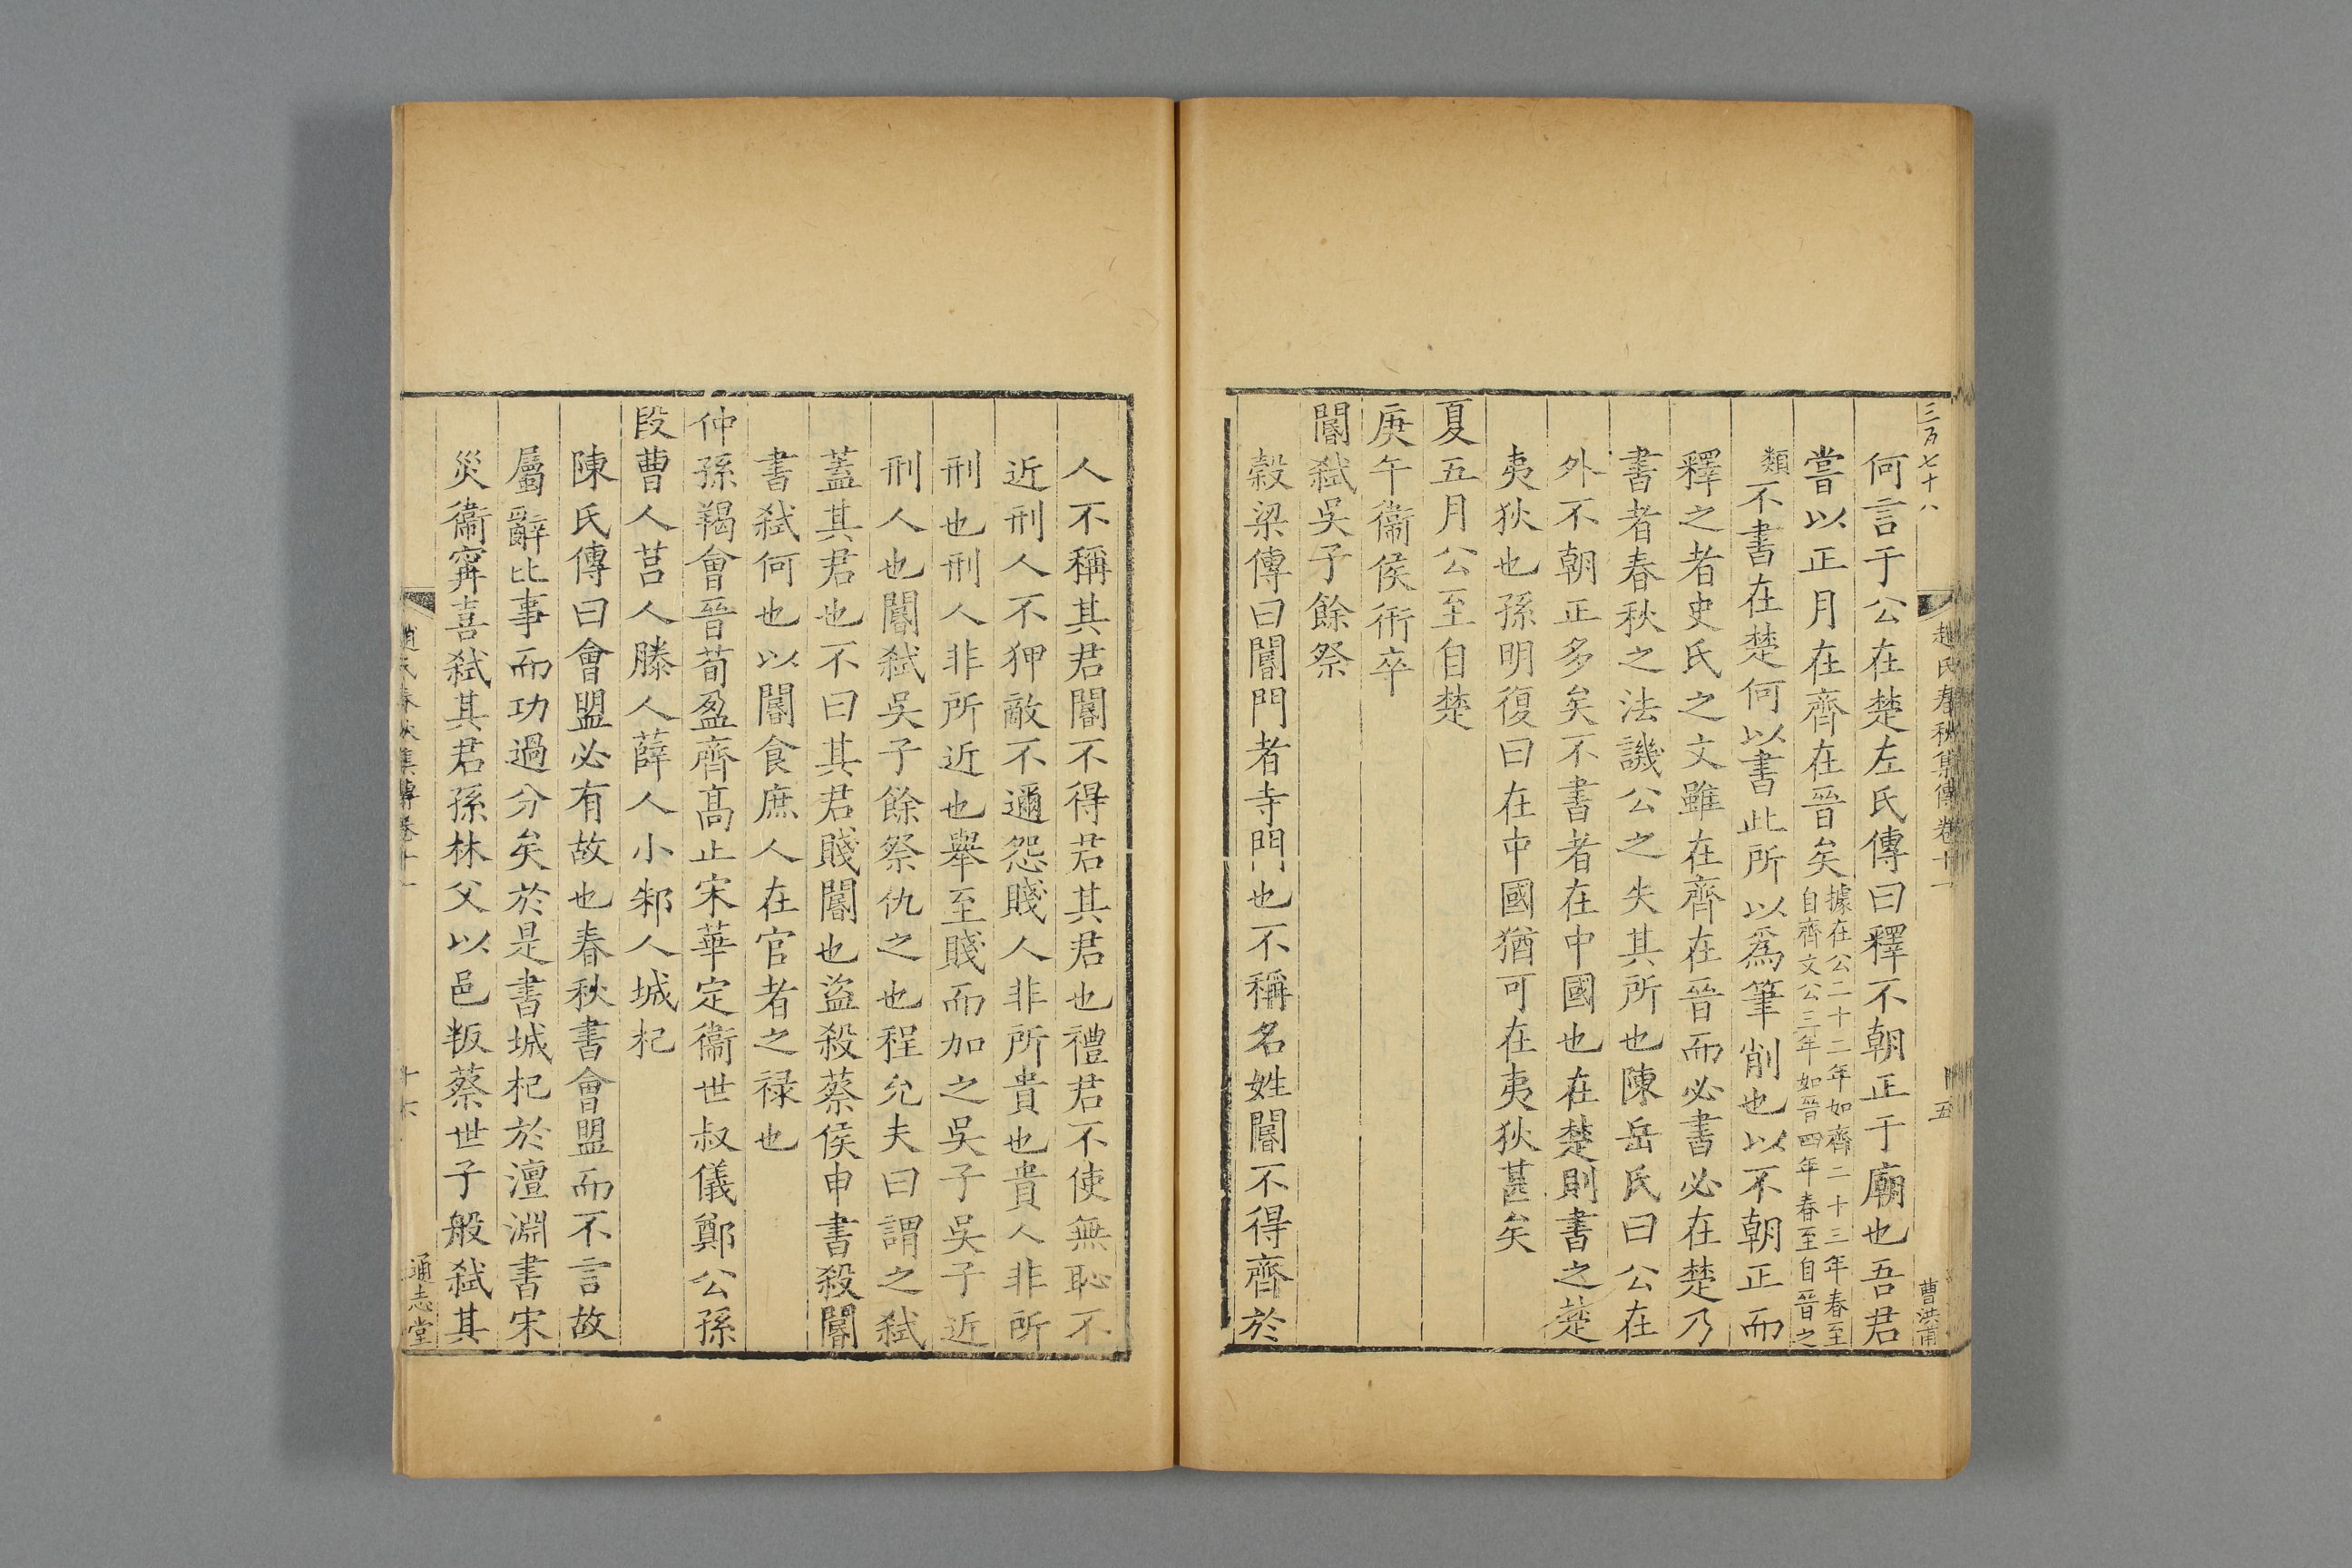 三百七十八
趙氏春秋集傳卷十一
十五
曹洪甫
何言于公在楚左氏傳曰釋不朝正于廟也吾君
嘗以正月在齊在晉矣據在公二十二年如齊二十三年春至
自齊文公三年如晉四年春至自晉之
類不書在楚何以書此所以爲筆削也以不朝正而
釋之者史氏之文雖在齊在晉而必書必在楚乃
書者春秋之法譏公之失其所也陳岳氏曰公在
外不朝正多矣不書者在中國也在楚則書之楚
夷狄也孫明復曰在中國猶可在夷狄甚矣
夏五月公至自楚
庚午衞侯衎卒
閽弑吳子餘祭
榖梁傳曰閽門者寺門也不稱名姓閽不得齊於
人不稱其君閽不得君其君也禮君不使無恥不
近刑人不狎敵不邇怨賤人非所貴也貴人非所
刑也刑人非所近也舉至賤而加之吳子吳子近
刑人也閽弑吳子餘祭仇之也程允夫曰謂之弑
蓋其君也不曰其君賤閽也盜殺蔡侯申書殺閽
書弑何也以閽食庶人在官者之祿也
仲孫羯會晉荀盈齊高止宋華定衞世叔儀鄭公孫
段曹人莒人滕人薛人小邾人城杞
陳氏傳曰會盟必有故也春秋書會盟而不言故
屬辭比事而功過分矣於是書城杞於澶淵書宋
災衞甯喜弑其君孫林父以邑叛蔡世子般弑其
趙氏春秋集傳卷十一
十六
通志堂